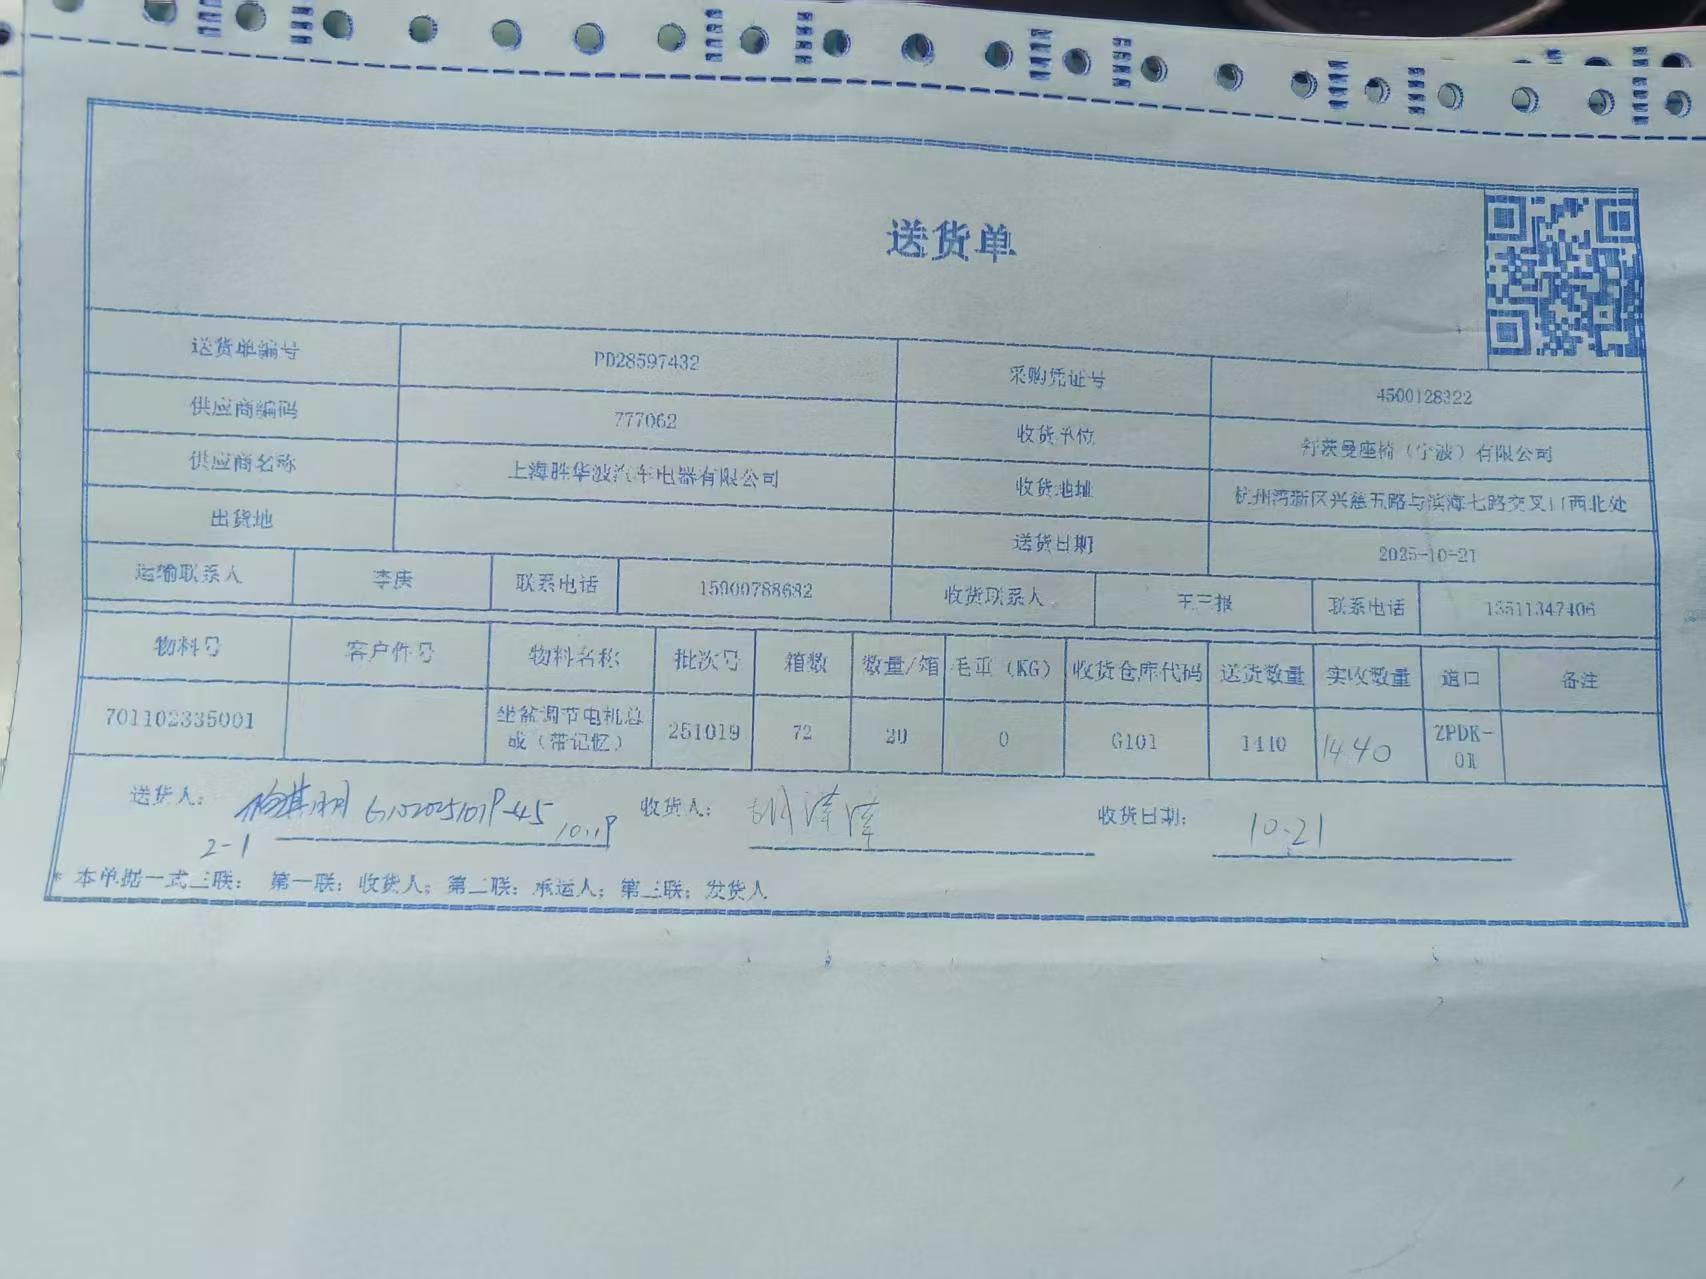 送货单
送货单编号 PD28597432 采购凭证号 4500128322
供应商编码 777062 收货单位 舒茨曼座椅（宁波）有限公司
供应商名称 上海胜华波汽车电器有限公司 收货地址 杭州湾新区兴慈五路与滨海七路交叉口西北处
出货地 送货日期 2025-10-21
运输联系人 李庚 联系电话 15900788682 收货联系人 联系电话 13511347406
物料号 客户件号 物料名称 批次号 箱数 数量/箱 毛重（KG） 收货仓库代码 送货数量 实收数量 道口 备注
701102335001 坐盆调节电机总 251019 72 20 0 G101 1440 1440 ZPDK-
成（带记忆） 01
送货人： G1020251019-45 10.19 收货人： 收货日期： 10.21
2-1
* 本单据一式三联： 第一联：收货人；第二联：承运人；第三联：发货人